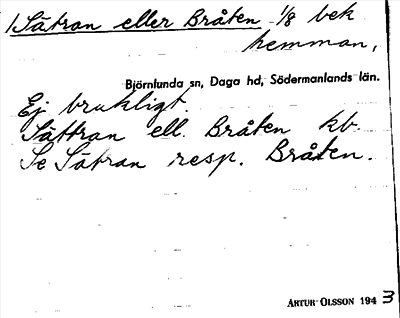 1 Sätran eller Bråten 1/8 bek
hemman,
Björnlunda sn, Daga hd, Södermanlands län.
Ej brukligt.
Sättran ell. Bråten kb.
Se Sätran resp. Bråten.
ARTUR OLSSON 1943